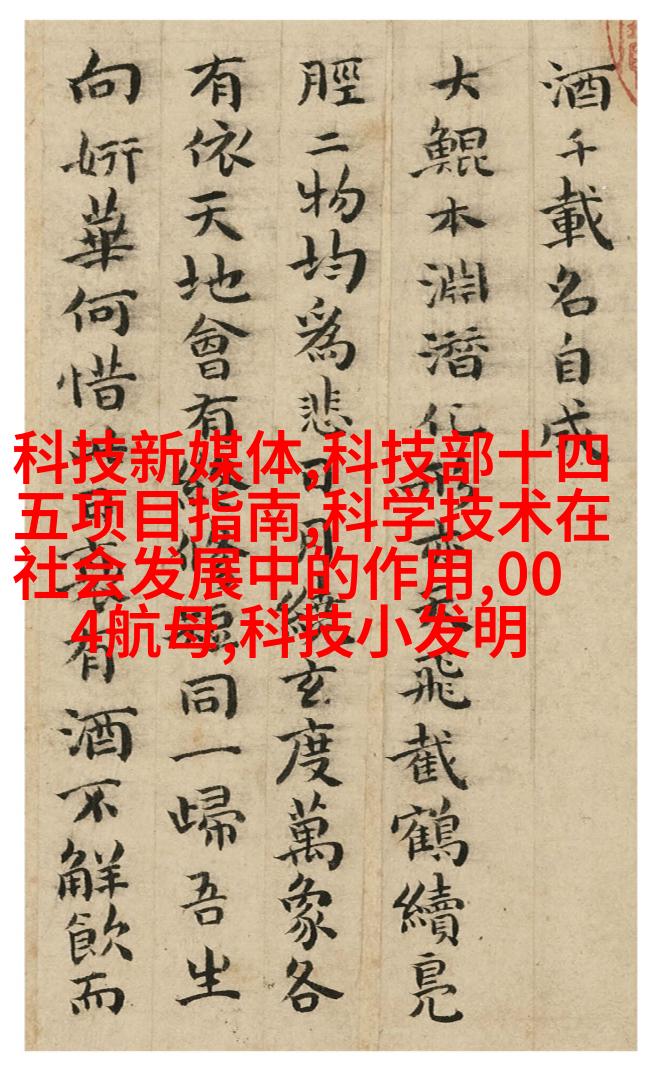 酒千載名自成
大鯤本淵潛化天飛截鶴續鳧
脛二物均爲悲可月纏玄度萬象各
有依天地會有終脩短同一歸吾生
向妍華何惜有酒不解飲而
科技新媒体,科技部十四
五项目指南,科学技术在
社会发展中的作用,00
4航母,科技小发明